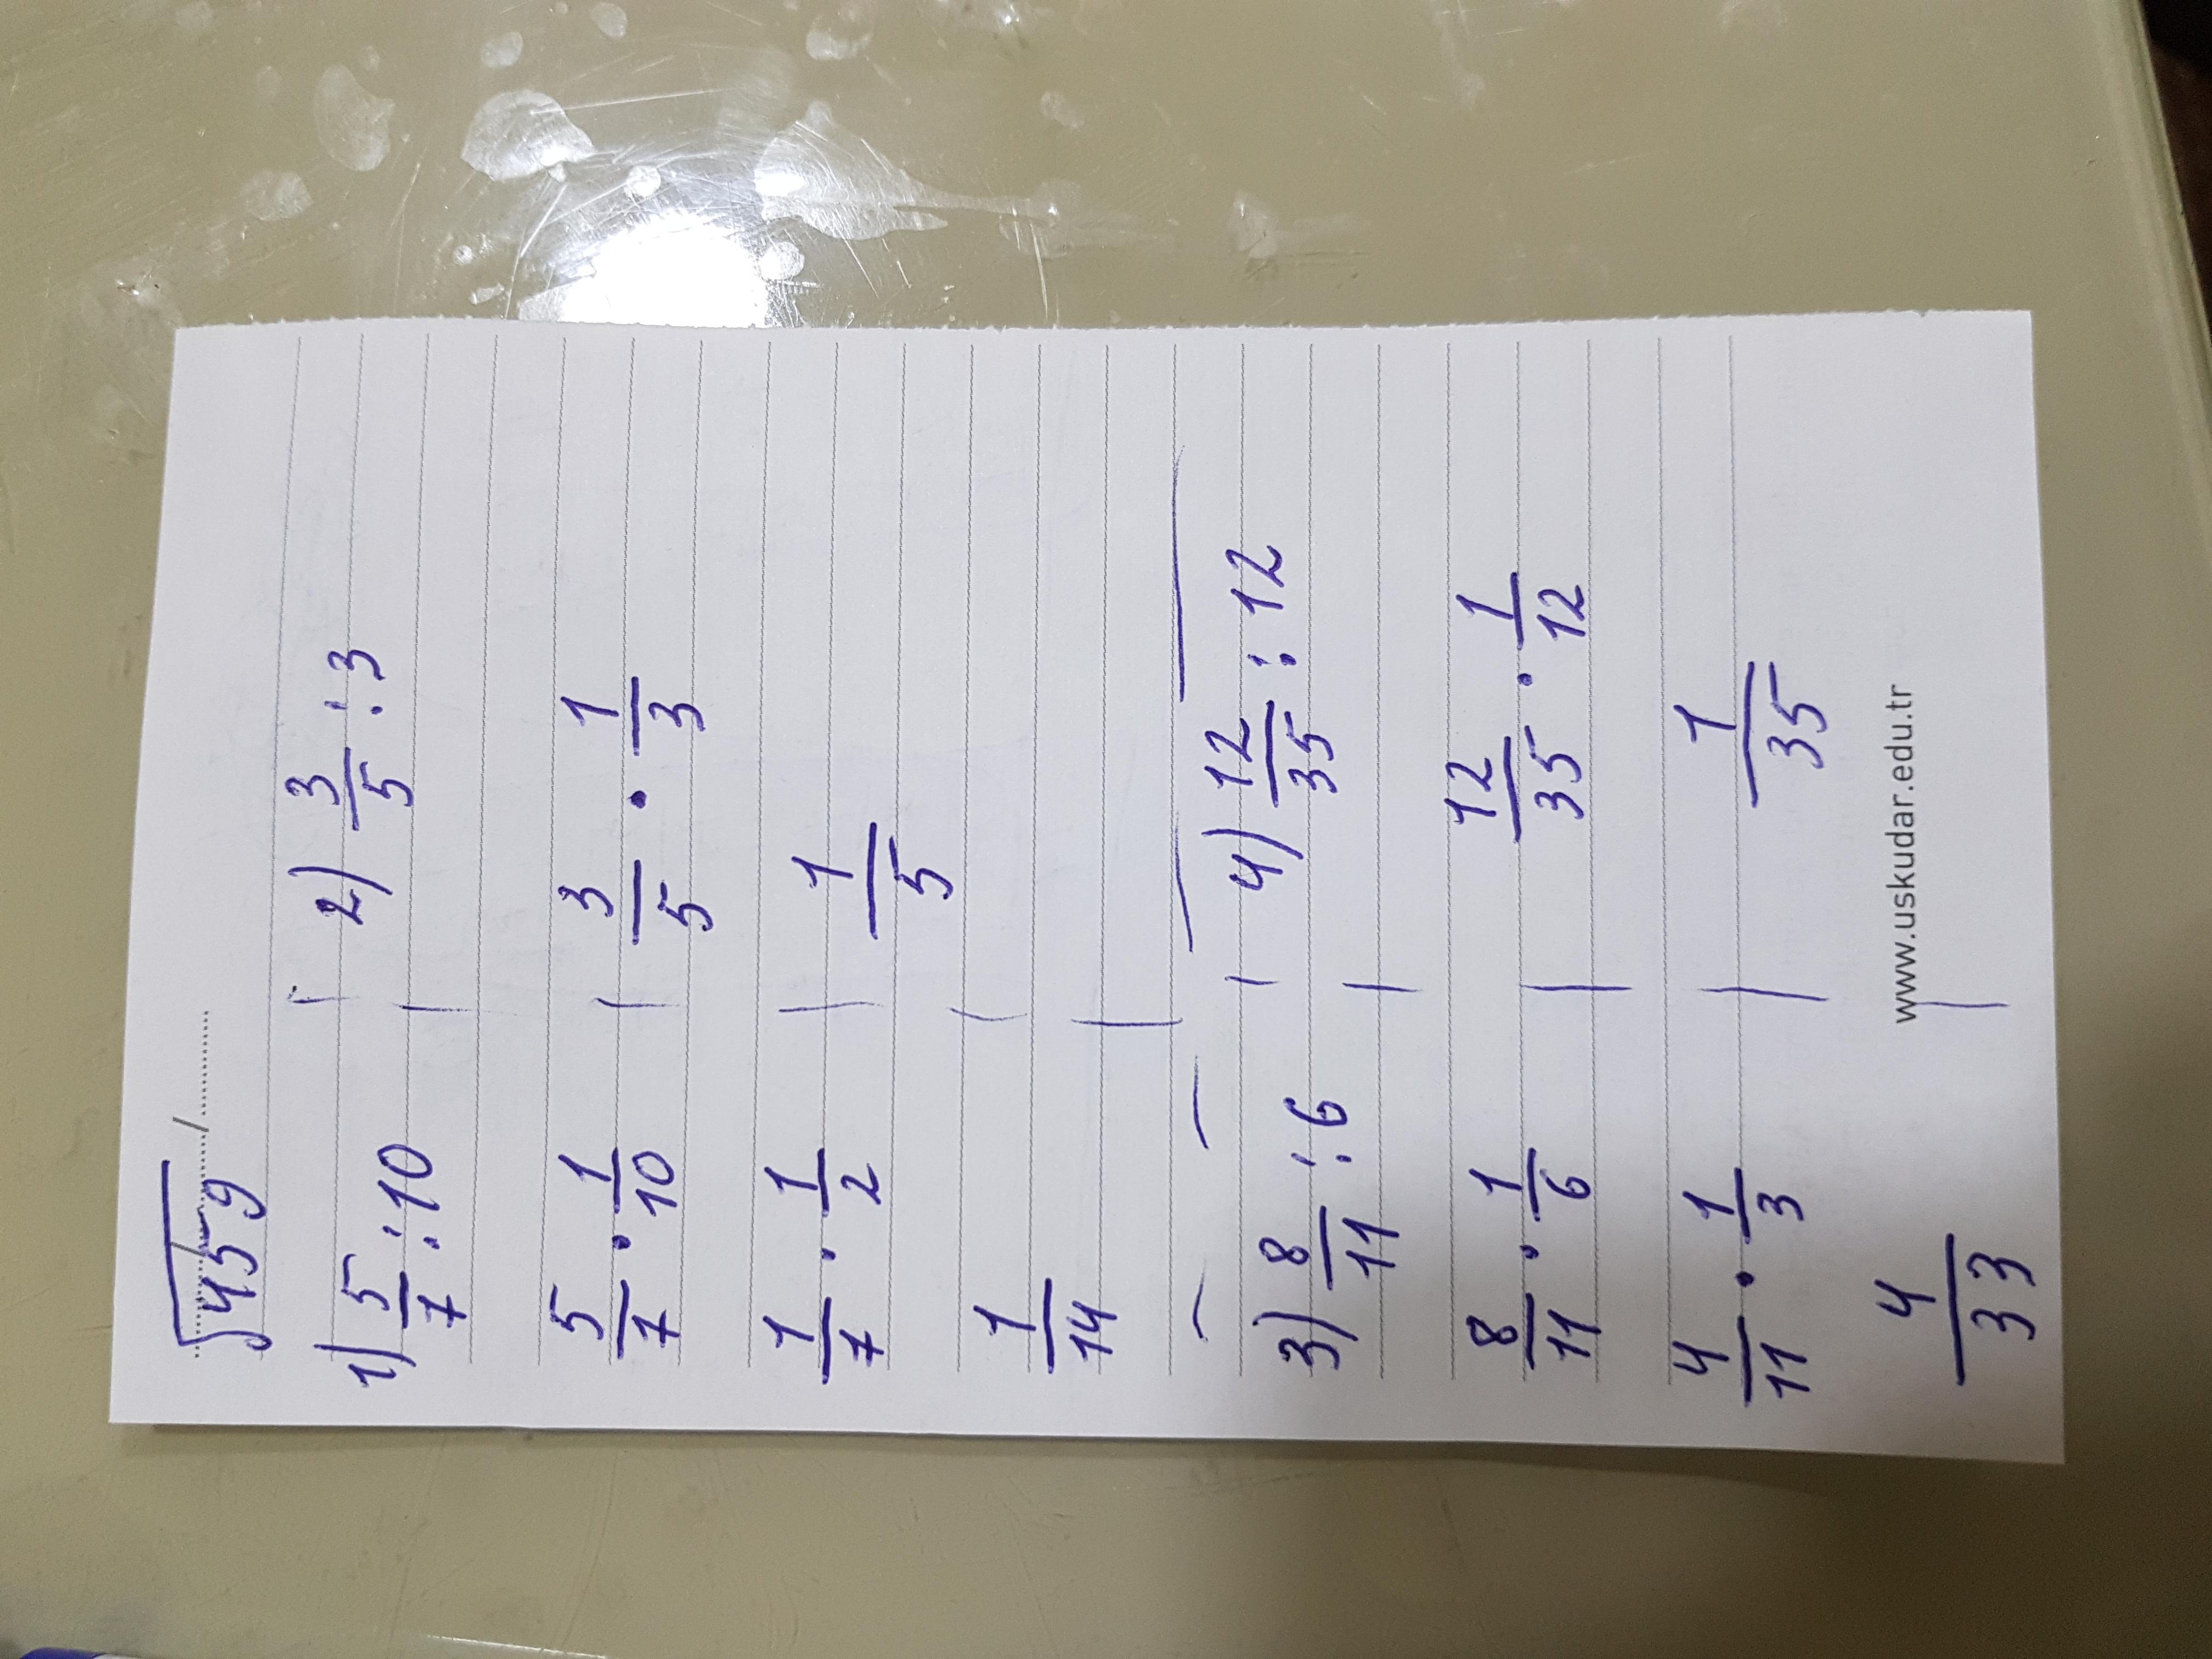 √459
1) 5/7 : 10
5/7 · 1/10
1/7 · 1/2
1/14
2) 3/5 : 3
3/5 · 1/3
1/5
3) 8/11 : 6
8/11 · 1/6
4/11 · 1/3
4/33
4) 12/35 : 12
12/35 · 1/12
1/35
www.uskudar.edu.tr